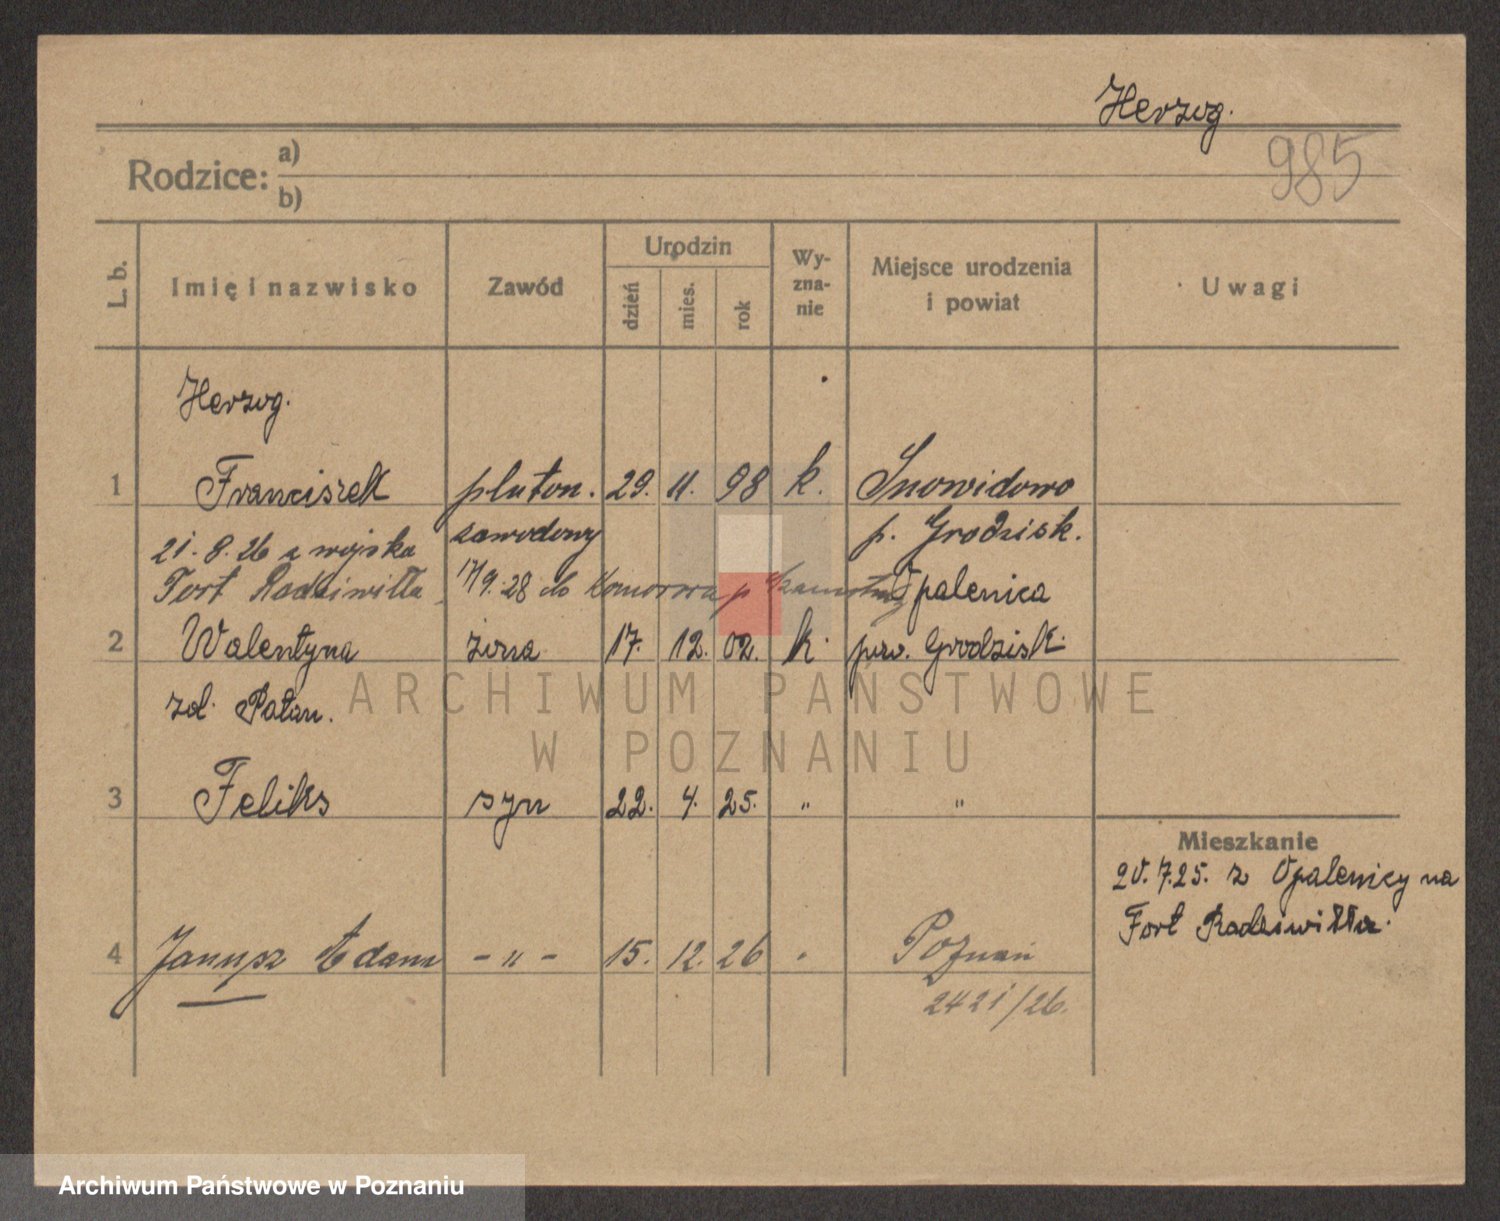 Herzog.
985
Rodzice: a)
b)
L. b.
Imię i nazwisko
Zawód
Urodzin
dzień
mies.
rok
Wy-
zna-
nie
Miejsce urodzenia
i powiat
Uwagi
Herzog.
1 Franciszek pluton. 29. 11. 98 k. Snowidowo
zawodowy p. Grodzisk.
21.8.26 z wojska
Fort Radziwiłła 17/9.28 do Komorowa p Opalenica
2 Walentyna żona 17. 12. 02. k. pow. Grodzisk.
zd. Patan.
3 Feliks syn 22. 4. 25. " "
Mieszkanie
20.7.25. z Opalenicy na
Fort Radziwiłła.
4 Janusz Adam - " - 15. 12. 26 Poznań
2421/26.
ARCHIWUM PAŃSTWOWE
W POZNANIU
Archiwum Państwowe w Poznaniu